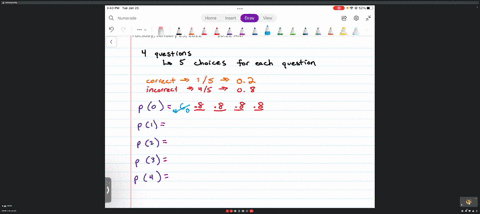 2:43 PM Tue Jan 25
Home Insert Draw View
4 questions
↳ 5 choices for each question
correct → 1/5 → 0.2
incorrect → 4/5 → 0.8
P(0) = ₄C₀ .8 .8 .8 .8
P(1) =
P(2) =
P(3) =
P(4) =